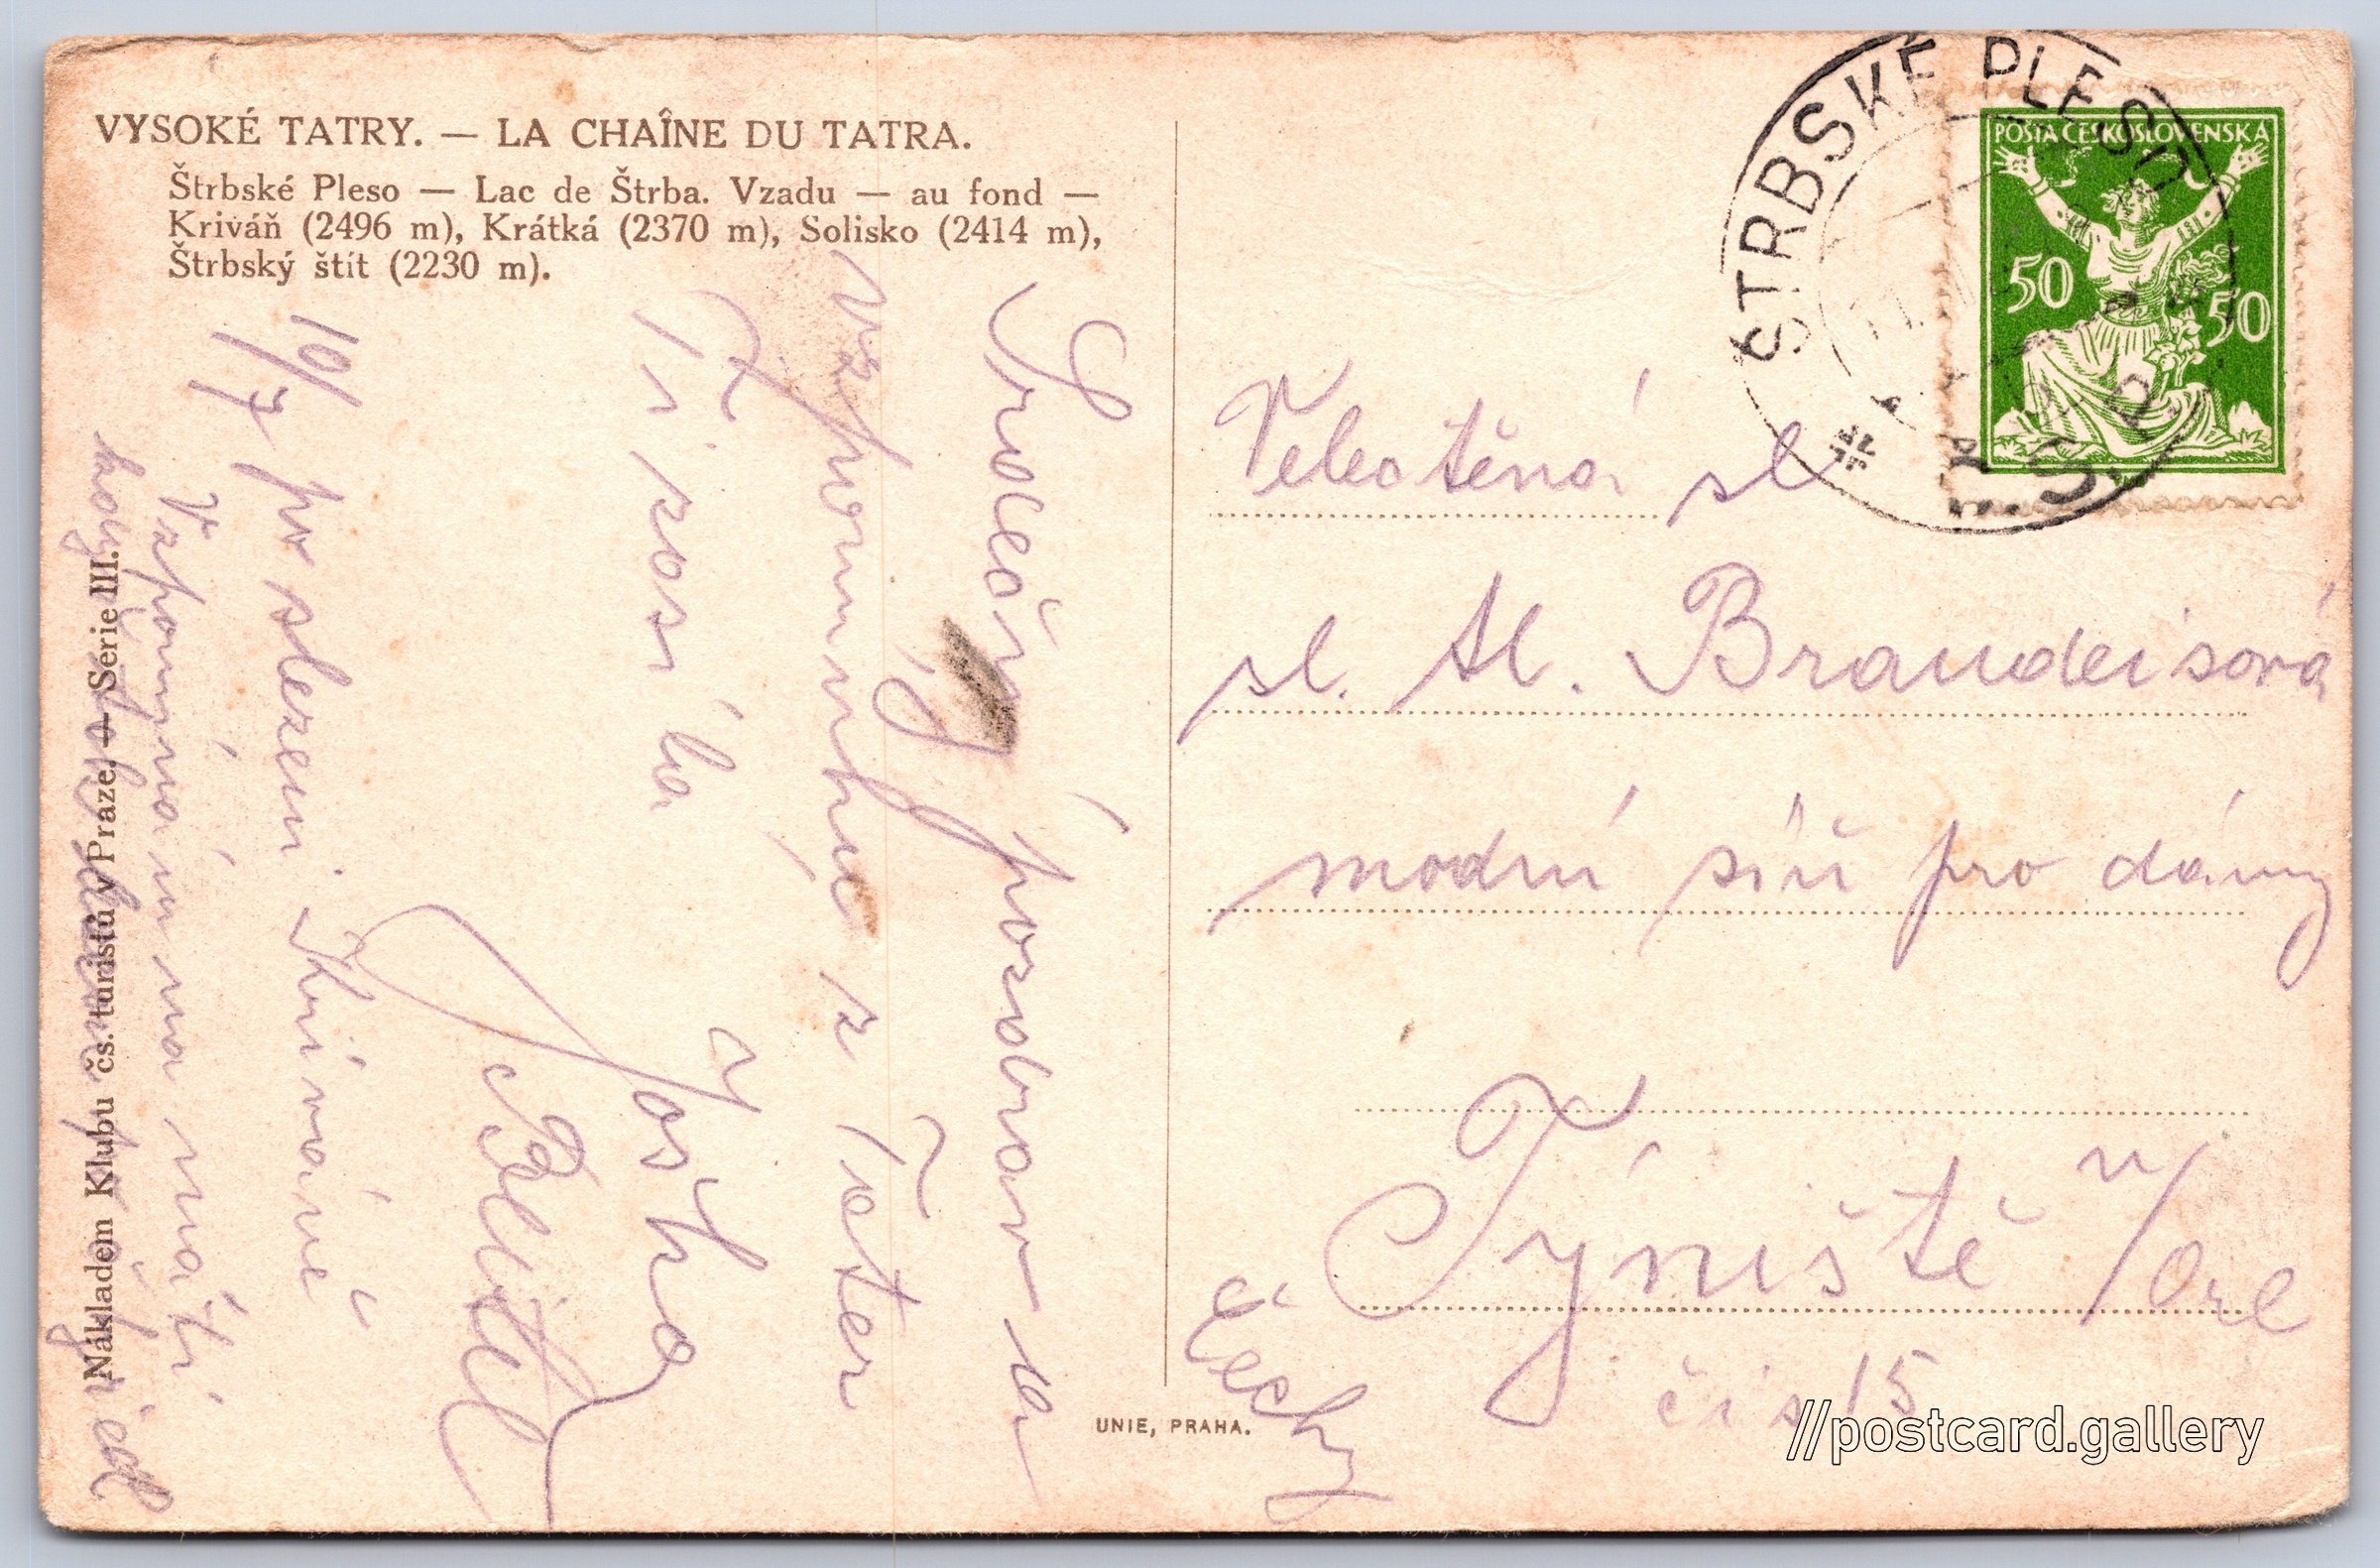 VYSOKÉ TATRY. — LA CHAÎNE DU TATRA.
Štrbské Pleso — Lac de Štrba. Vzadu — au fond —
Kriváň (2496 m), Krátká (2370 m), Solisko (2414 m),
Štrbský štít (2230 m).
Srdečný pozdrav a
vzpomínku z Tater
Ti posílá
Joska
10/7 po slezení Kriváně
Vzpomínám na
Nákladem Klubu čs. turistů v Praze. — Serie III.
UNIE, PRAHA.
ŠTRBSKÉ PLESO
POŠTA ČESKOSLOVENSKÁ
50 50
Velectěná sl
sl. Al. Brandeisová
modní síň pro dámy
Týniště n/Orl
čís 15
Čechy
//postcard.gallery